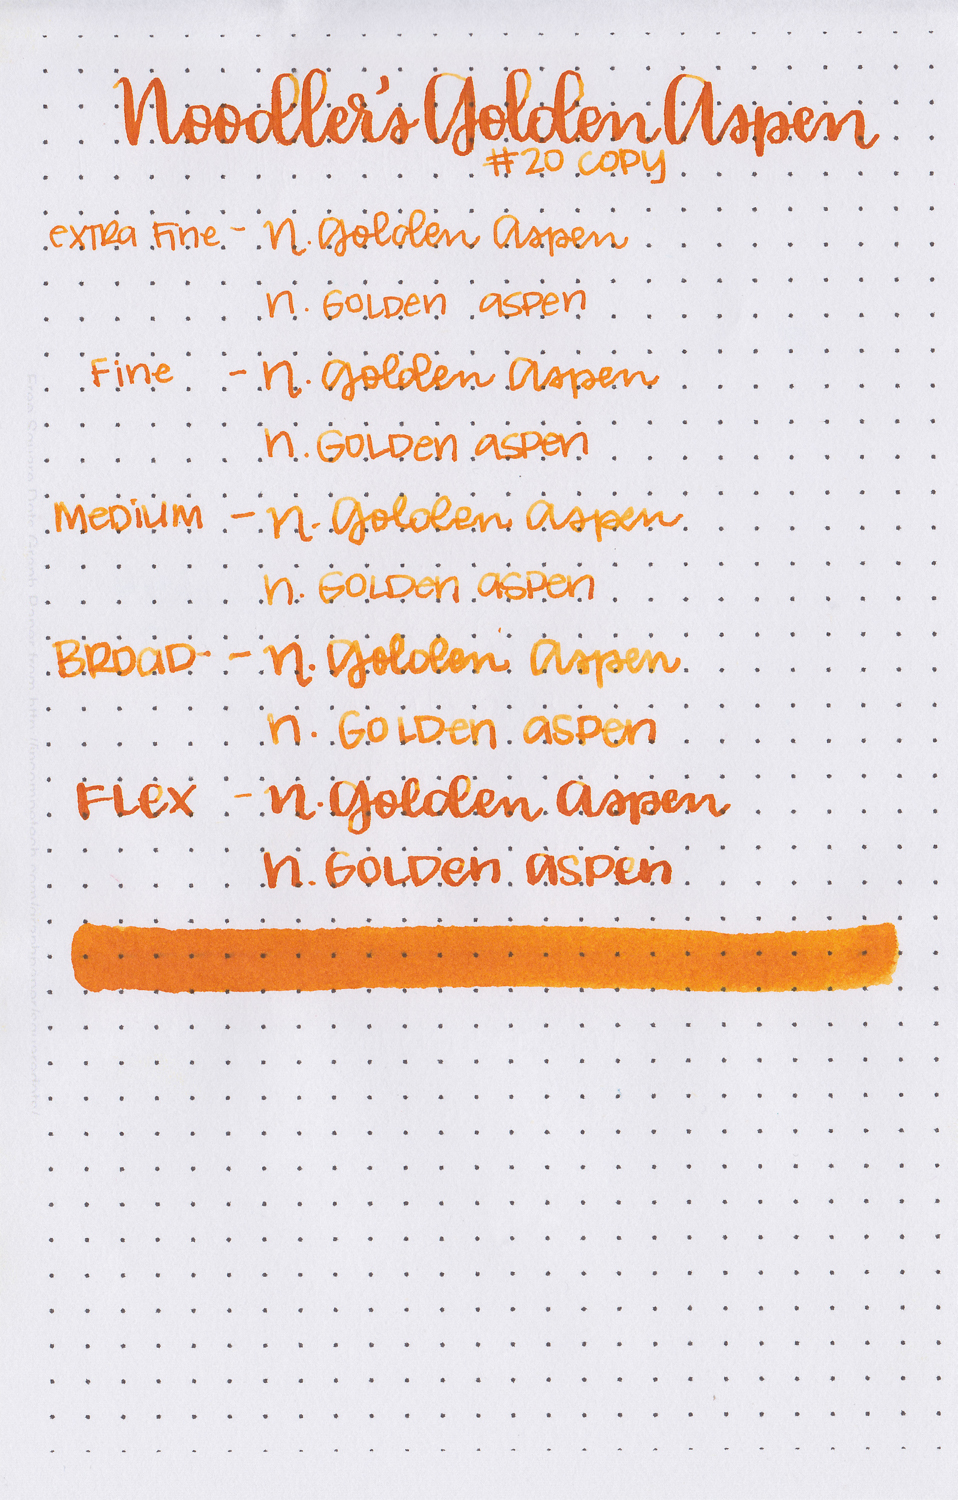 Noodler's Golden Aspen
#20 COPY
extra Fine - n. Golden Aspen
n. GOLDen aspen
Fine - n. Golden Aspen
n. GOLDen aspen
MeDiUM - n. Golden Aspen
n. GOLDen aspen
BROAD - n. Golden Aspen
n. GOLDen aspen
FLex - n. Golden Aspen
n. GOLDen aspen